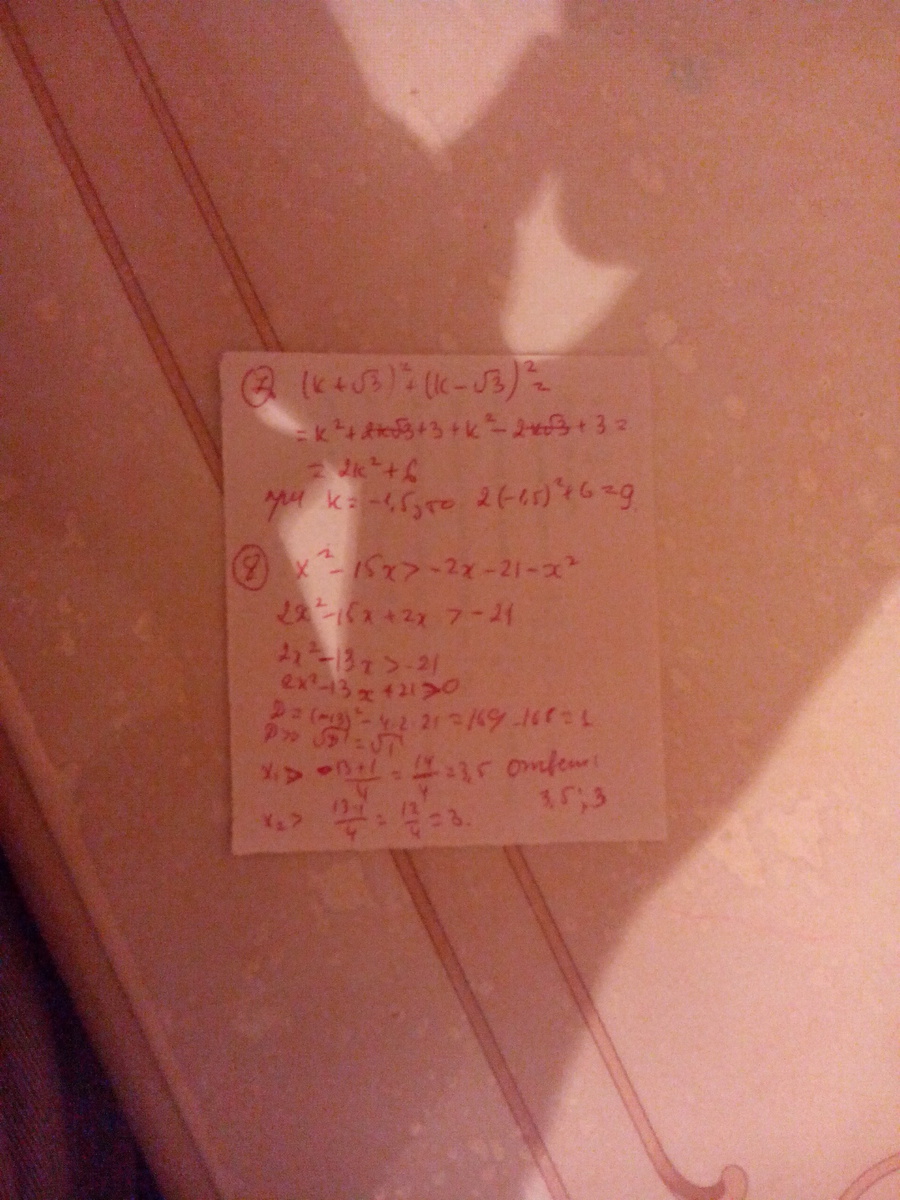 ⑦ (к + √3)² + (к - √3)² =
= к² + 2к√3 + 3 + к² - 2к√3 + 3 =
= 2к² + 6
при к = -1,5, то 2(-1,5)² + 6 = 9
⑧ x² - 15x > -2x - 21 - x²
2x² - 15x + 2x > -21
2x² - 13x > -21
2x² - 13x + 21 > 0
D = (-13)² - 4·2·21 = 169 - 168 = 1
D > 0 √D = √1
x₁ > 13+1/4 = 14/4 = 3,5 Ответ:
3,5; 3
x₂ > 13-1/4 = 12/4 = 3.